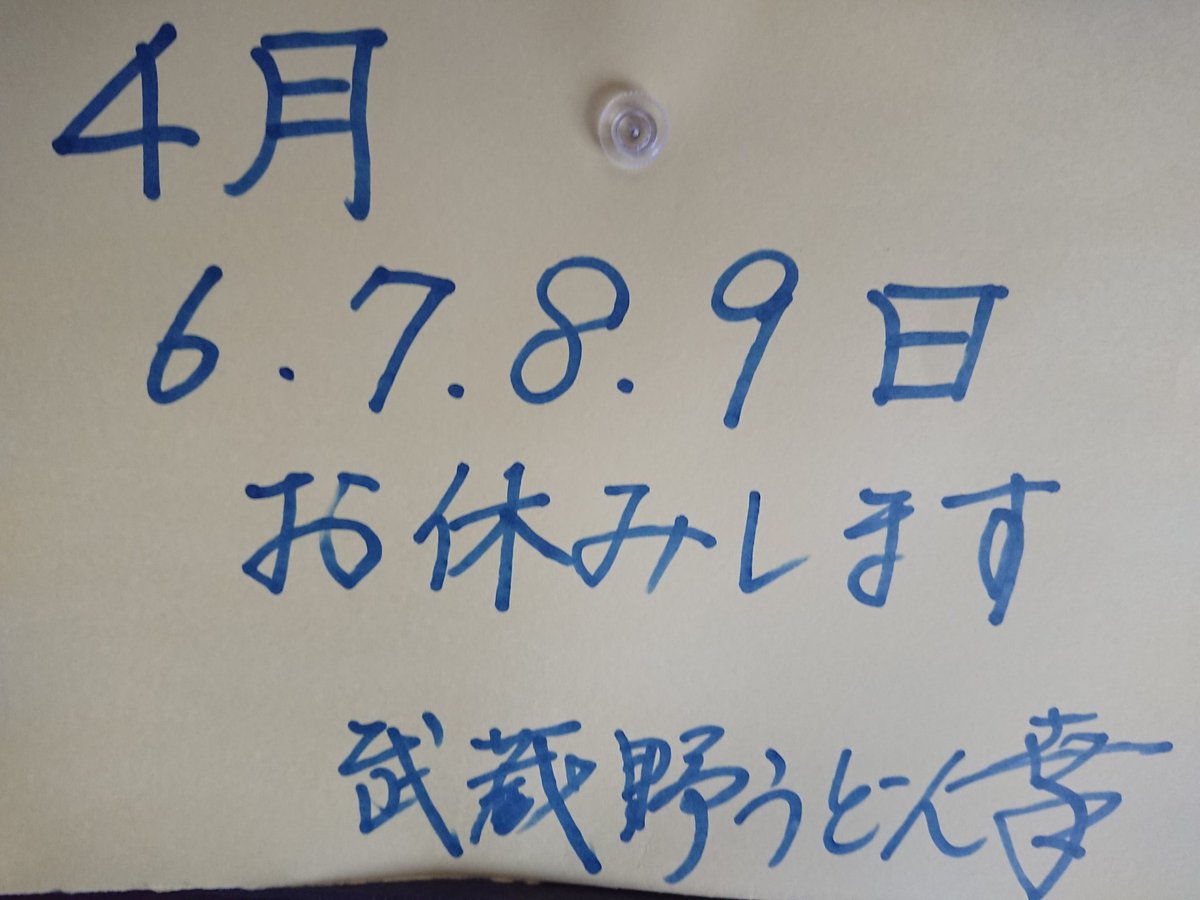 4月
6.7.8.9日
お休みします
武蔵野うどん